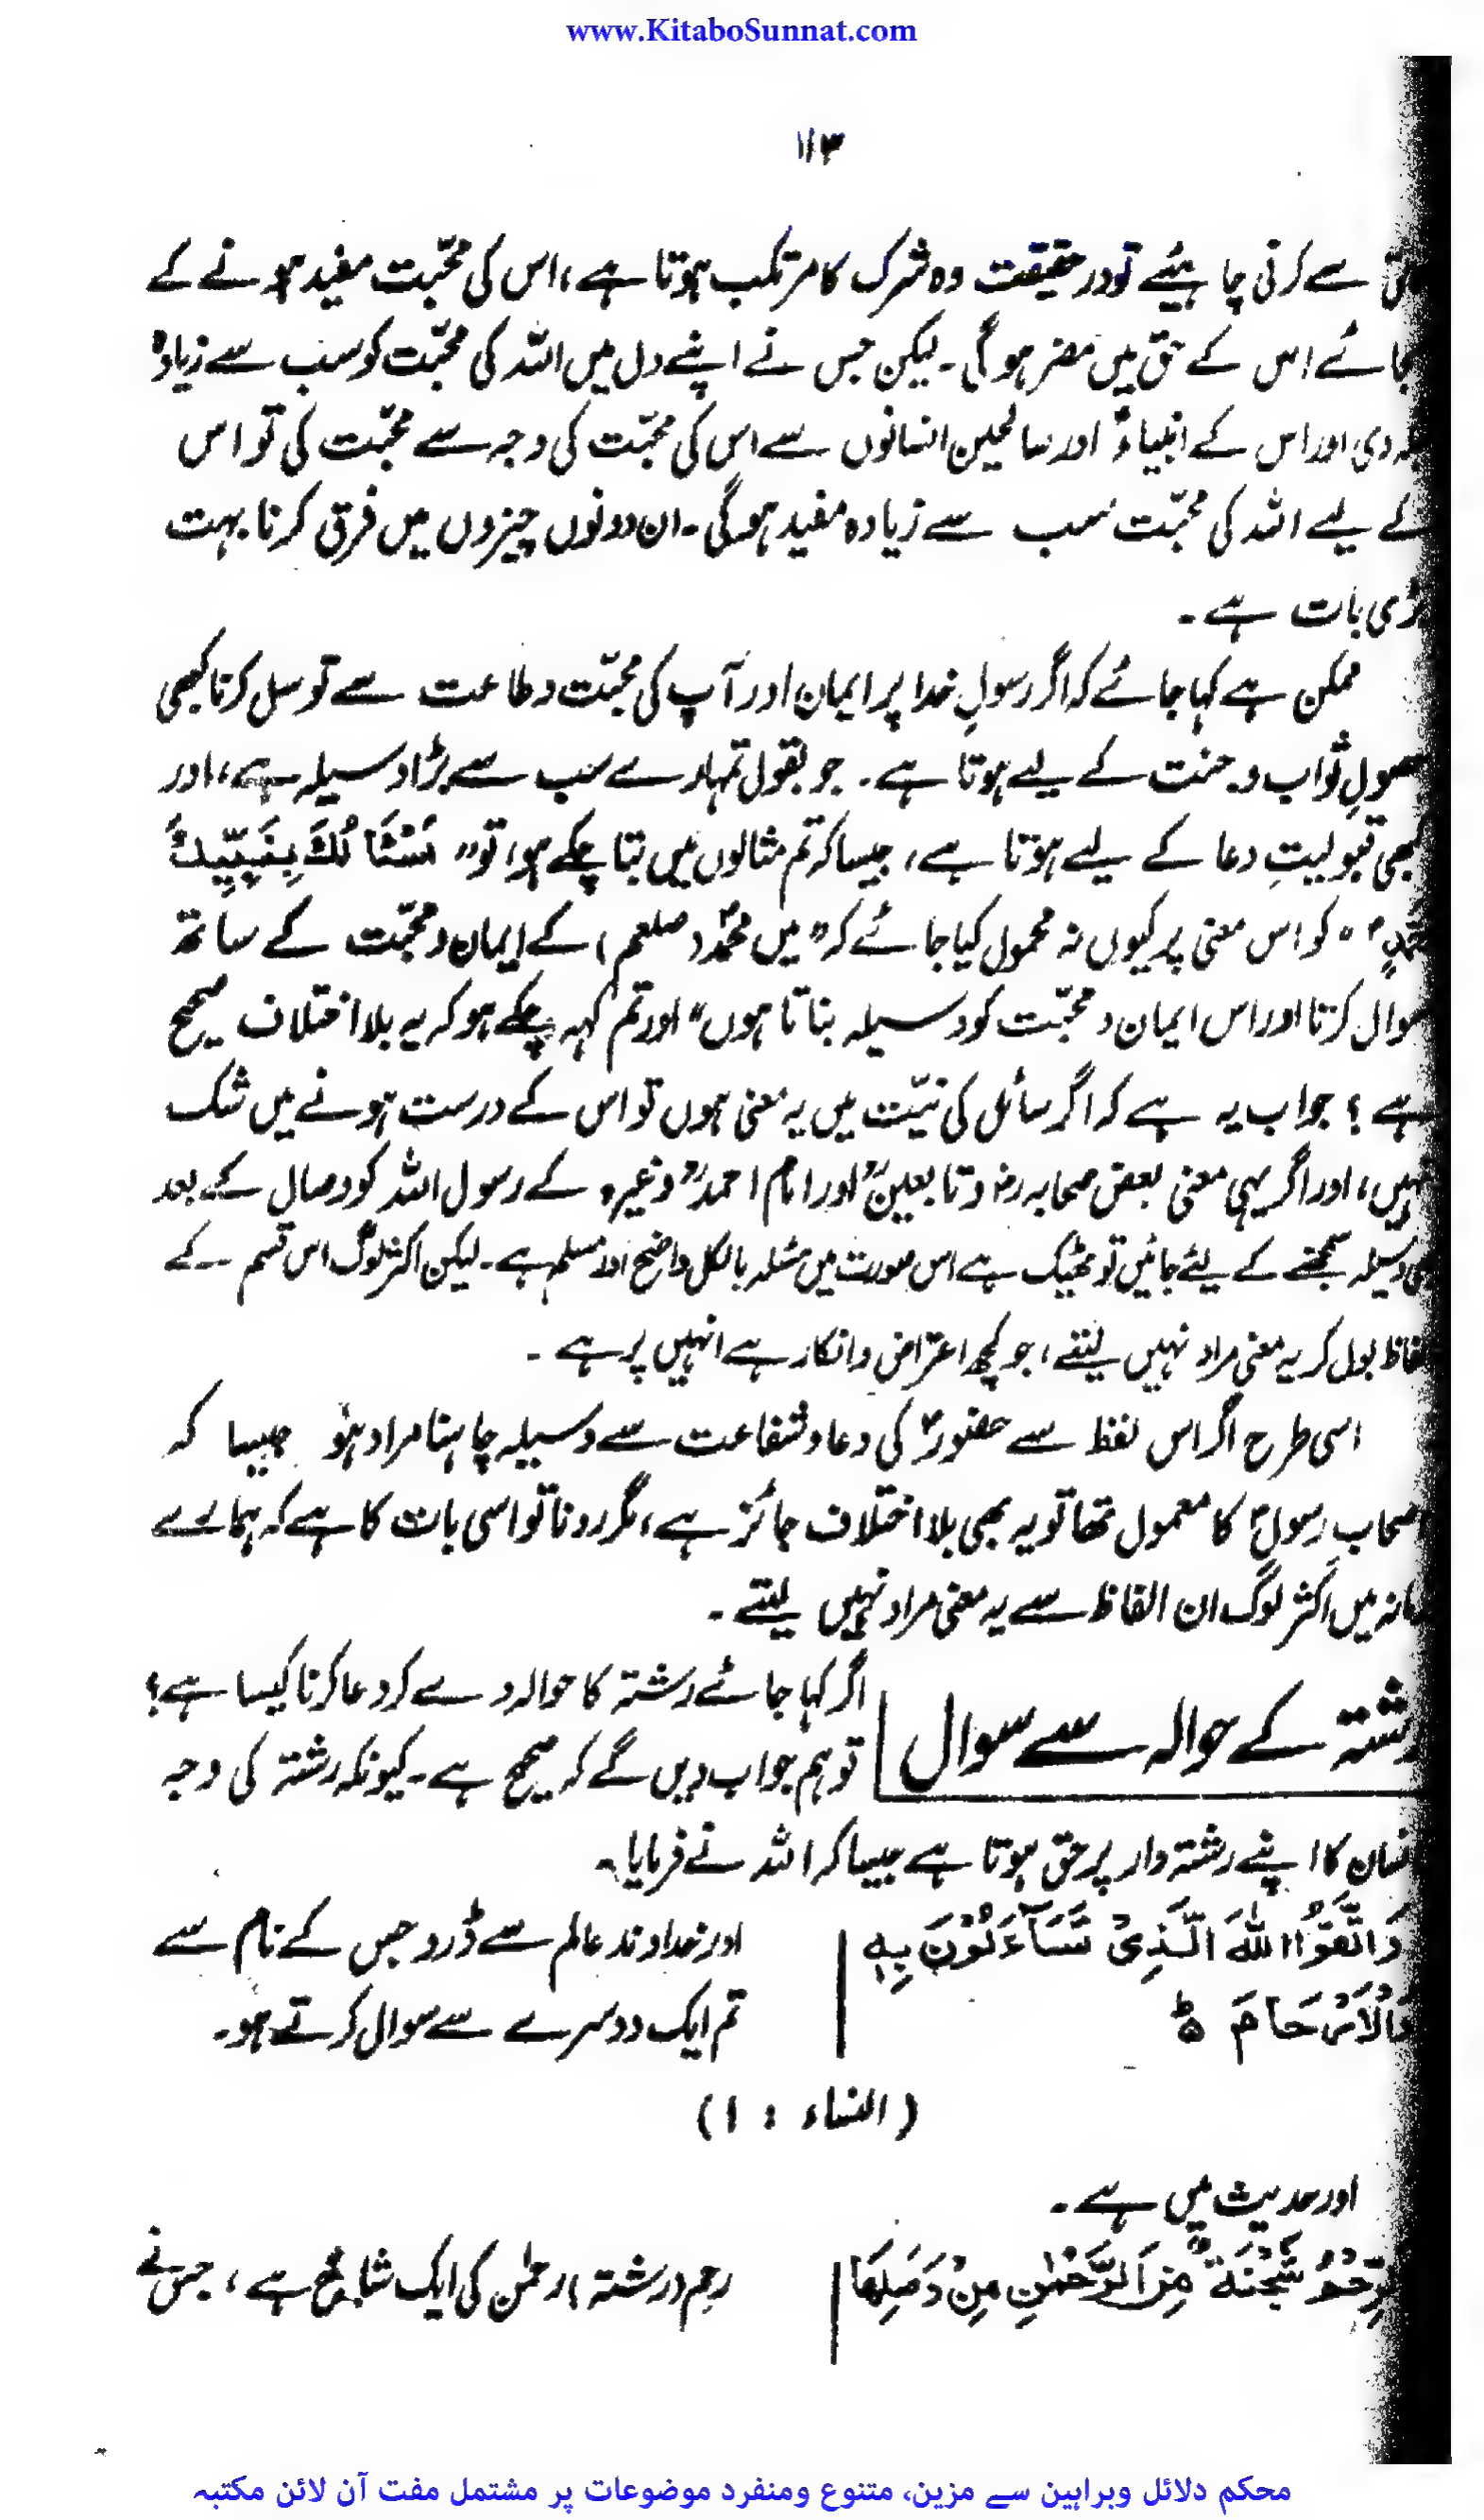 www.KitaboSunnat.com
۱۱۳
سے کرنی چاہیئے تو درحقیقت وہ شرک کا مرتکب ہوتا ہے، اس کی محبّت مفید ہونے کے
اس کے حق میں مضر ہو گی۔ لیکن جس نے اپنے دل میں اللہ کی محبّت کو سب سے زیادہ
دی اور اس کے انبیاءؑ اور صالحین انسانوں سے اس کی محبّت کی وجہ سے محبّت کی تو اس
کے لیے اللہ کی محبّت سب سے زیادہ مفید ہو گی۔ ان دونوں چیزوں میں فرق کرنا بہت
بات ہے۔
ممکن ہے کہا جائے کہ اگر رسولِ خدا پر ایمان اور آپ کی محبّت و طاعت سے توسل کرنا کبھی
حصولِ ثواب و جنت کے لیے ہوتا ہے۔ جو بقول تمہارے سب سے بڑا وسیلہ ہے، اور
کبھی قبولیتِ دعا کے لیے ہوتا ہے، جیسا کہ تم مثالوں میں بتا چکے ہو، تو "نَسْئَالُكَ بِنَبِيِّكَ
کو اس معنی پر کیوں نہ محمول کیا جائے کہ "میں محمدؐ (صلعم) کے ایمان و محبّت کے ساتھ
سوال کرتا اور اس ایمان و محبّت کو وسیلہ بناتا ہوں" اور تم کہہ چکے ہو کہ یہ بلا اختلاف صحیح
ہے؟ جواب یہ ہے کہ اگر سائل کی نیّت میں یہ معنی ہوں تو اس کے درست ہونے میں شک
نہیں، اور اگر یہی معنی بعض صحابہ رضؓ و تابعینؒ اور امام احمدؒ وغیرہ کے رسول اللہ کو وصال کے بعد
وسیلہ سمجھنے کے لیئے جائیں تو ٹھیک ہے اس صورت میں مسئلہ بالکل واضح اور مسلم ہے۔ لیکن اکثر لوگ اس قسم کے
الفاظ بول کر یہ معنی مراد نہیں لیتے، جو کچھ اعتراض و انکار ہے انہیں پر ہے۔
اسی طرح اگر اس لفظ سے حضورؐ کی دعا و شفاعت سے وسیلہ چاہنا مراد ہو جیسا کہ
اصحابِ رسولؐ کا معمول تھا تو یہ بھی بلا اختلاف جائز ہے، مگر رونا تو اسی بات کا ہے کہ ہمارے
زمانہ میں اکثر لوگ ان الفاظ سے یہ معنی مراد نہیں لیتے۔
رشتہ کے حوالہ سے سوال
اگر کہا جائے رشتہ کا حوالہ دے کر دعا کرنا کیسا ہے؟
تو ہم جواب دیں گے کہ صحیح ہے۔ کیونکہ رشتہ کی وجہ
انسان کا اپنے رشتہ دار پر حق ہوتا ہے جیسا کہ اللہ نے فرمایا۔
وَاتَّقُوا اللّٰهَ الَّذِىْ تَسَآءَلُوْنَ بِهٖ
وَالْاَرْحَامَ ط
اور خداوند عالم سے ڈرو جس کے نام سے
تم ایک دوسرے سے سوال کرتے ہو۔
(النساء : ۱)
اور حدیث میں ہے۔
شَجْنَةٌ مِّنَ الرَّحْمٰنِ مِنْ وَصَلَهَا
رحم (رشتہ) رحمٰن کی ایک شاخ ہے، جس نے
محکم دلائل وبراہین سے مزین، متنوع ومنفرد موضوعات پر مشتمل مفت آن لائن مکتبہ